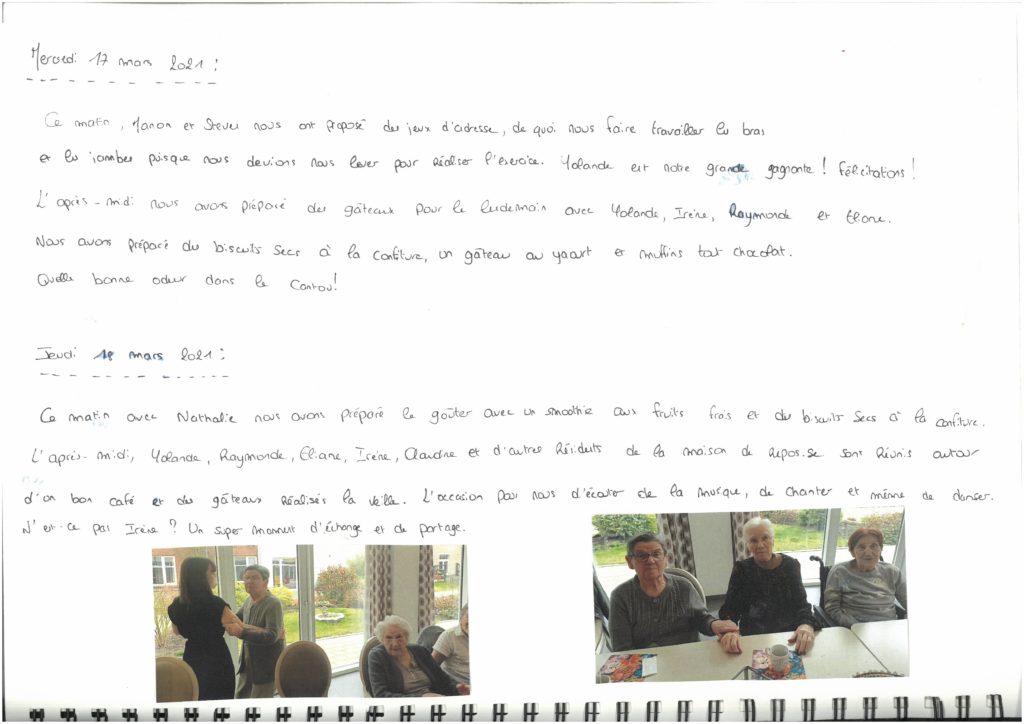 Mercredi 17 mars 2021 :
Ce matin, Manon et Steven nous ont proposé des jeux d'adresse, de quoi nous faire travailler les bras
et les jambes puisque nous devions nous lever pour réaliser l'exercice. Yolande est notre grande gagnante ! Félicitations !
L'après-midi nous avons préparé des gâteaux pour le lendemain avec Yolande, Irène, Raymonde et Eliane.
Nous avons préparé des biscuits secs à la confiture, un gâteau au yaourt et muffins tout chocolat.
Quelle bonne odeur dans le Cantou!
Jeudi 18 mars 2021 :
Ce matin avec Nathalie nous avons préparé le goûter avec un smoothie aux fruits frais et des biscuits secs à la confiture.
L'après-midi, Yolande, Raymonde, Eliane, Irène, Claudine et d'autres Résidents de la maison de repos se sont réunis autour
d'un bon café et des gâteaux réalisés la veille. L'occasion pour nous d'écouter de la musique, de chanter et même de danser.
N'est-ce pas Irène ? Un super moment d'échange et de partage.